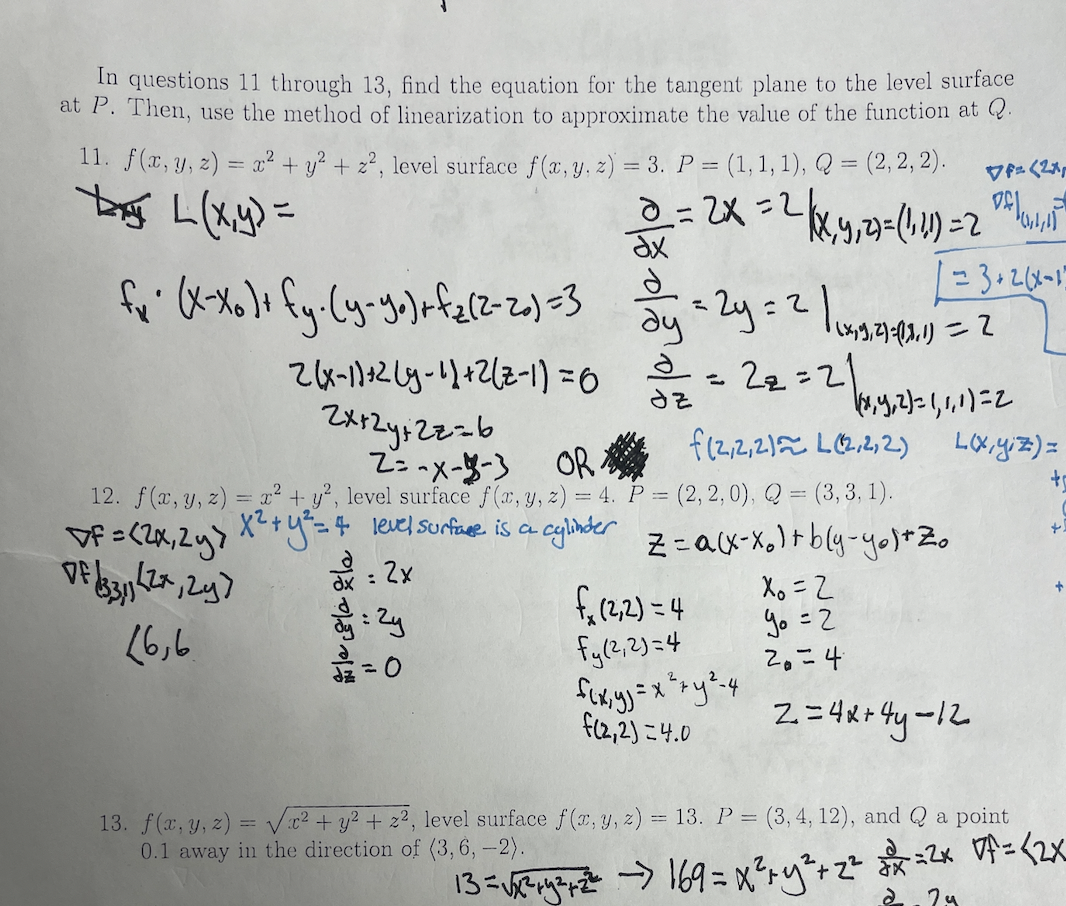 In questions 11 through 13, find the equation for the tangent plane to the level surface
at P. Then, use the method of linearization to approximate the value of the function at Q.
11. f(x, y, z) = x² + y² + z², level surface f(x, y, z) = 3. P = (1, 1, 1), Q = (2, 2, 2).
∇f = ⟨2x,
L(x,y) =
∂/∂x = 2x = 2 |(x,y,z)=(1,1,1) = 2
∇f|(1,1,1) =
fx · (x-x₀) + fy · (y-y₀) + fz (z-z₀) = 3
∂/∂y = 2y = 2 |(x,y,z)=(1,1,1) = 2
= 3 + 2(x-1
2(x-1)+2(y-1)+2(z-1) = 0
∂/∂z = 2z = 2 |(x,y,z)=1,1,1) = 2
2x+2y+2z = 6
z = -x-y-3 OR
f(2,2,2) ≈ L(2,2,2) L(x,y,z) =
12. f(x, y, z) = x² + y², level surface f(x, y, z) = 4. P = (2, 2, 0), Q = (3, 3, 1).
∇f = ⟨2x, 2y⟩ x² + y² = 4 level surface is a cylinder
z = a(x-x₀) + b(y-y₀) + z₀
∇f|(3,3,1) ⟨2x, 2y⟩
∂/∂x = 2x
∂/∂y = 2y
∂/∂z = 0
⟨6,6
fx(2,2) = 4
fy(2,2) = 4
f(x,y) = x² + y² - 4
f(2,2) = 4.0
x₀ = 2
y₀ = 2
z₀ = 4
z = 4x + 4y - 12
13. f(x, y, z) = √(x² + y² + z²), level surface f(x, y, z) = 13. P = (3, 4, 12), and Q a point
0.1 away in the direction of ⟨3, 6, −2⟩.
13 = √x²+y²+z² → 169 = x² + y² + z² ∂/∂x = 2x ∇f = ⟨2x
∂ 2y